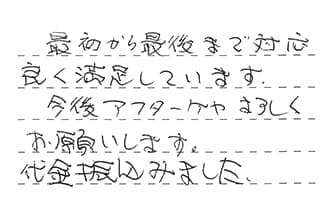 最初から最後まで対応
良く満足しています.
今後アフターケヤ よろしく
お願いします。
代金振込みました.